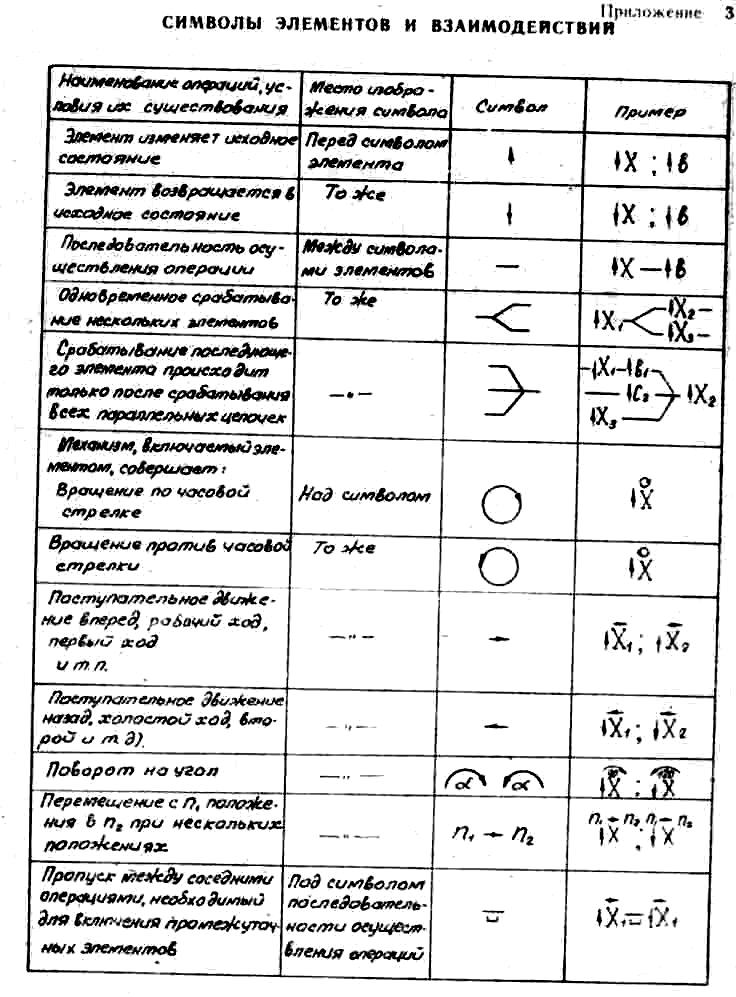 Приложение 3
СИМВОЛЫ ЭЛЕМЕНТОВ И ВЗАИМОДЕЙСТВИЙ
Наименование операций, ус-
ловия их существования
Место изобра-
жения символа
Символ
Пример
Элемент изменяет исходное
состояние
Перед символом
элемента
↑
↑X ; ↑в
Элемент возвращается в
исходное состояние
То же
↓
↓X ; ↓в
Последовательность осу-
ществления операции
Между символа-
ми элементов
—
↑X — ↑в
Одновременное срабатыва-
ние нескольких элементов
То же
↑X₁ ↑X₂ —
↑X₃ —
Срабатывание последующе-
го элемента происходит
только после срабатывания
всех параллельных цепочек
— " —
— ↑X₁ — ↑в₁
— ↑C₂ ↑X₂
↑X₃
Механизм, включаемый эле-
ментом, совершает:
Вращение по часовой
стрелке
Над символом
↑X
Вращение против часовой
стрелки
То же
↑X
Поступательное движе-
ние вперед, рабочий ход,
первый ход
и т.п.
— " —
→
↑X₁ ; ↑X₂
Поступательное движение
назад, холостой ход, вто-
рой и т.д).
— " —
←
↑X₁ ; ↓X₂
Поворот на угол
— " —
α α
↑X ; ↓X
Перемещение с n₁ положе-
ния в n₂ при нескольких
положениях
— " —
n₁ → n₂
n₁ → n₂ n₁ → n₂
↑X ; ↓X
Пропуск между соседними
операциями, необходимый
для включения промежуточ-
ных элементов
Под символом
последователь-
ности осущест-
вления операций
↑X₁ — ↓X₁